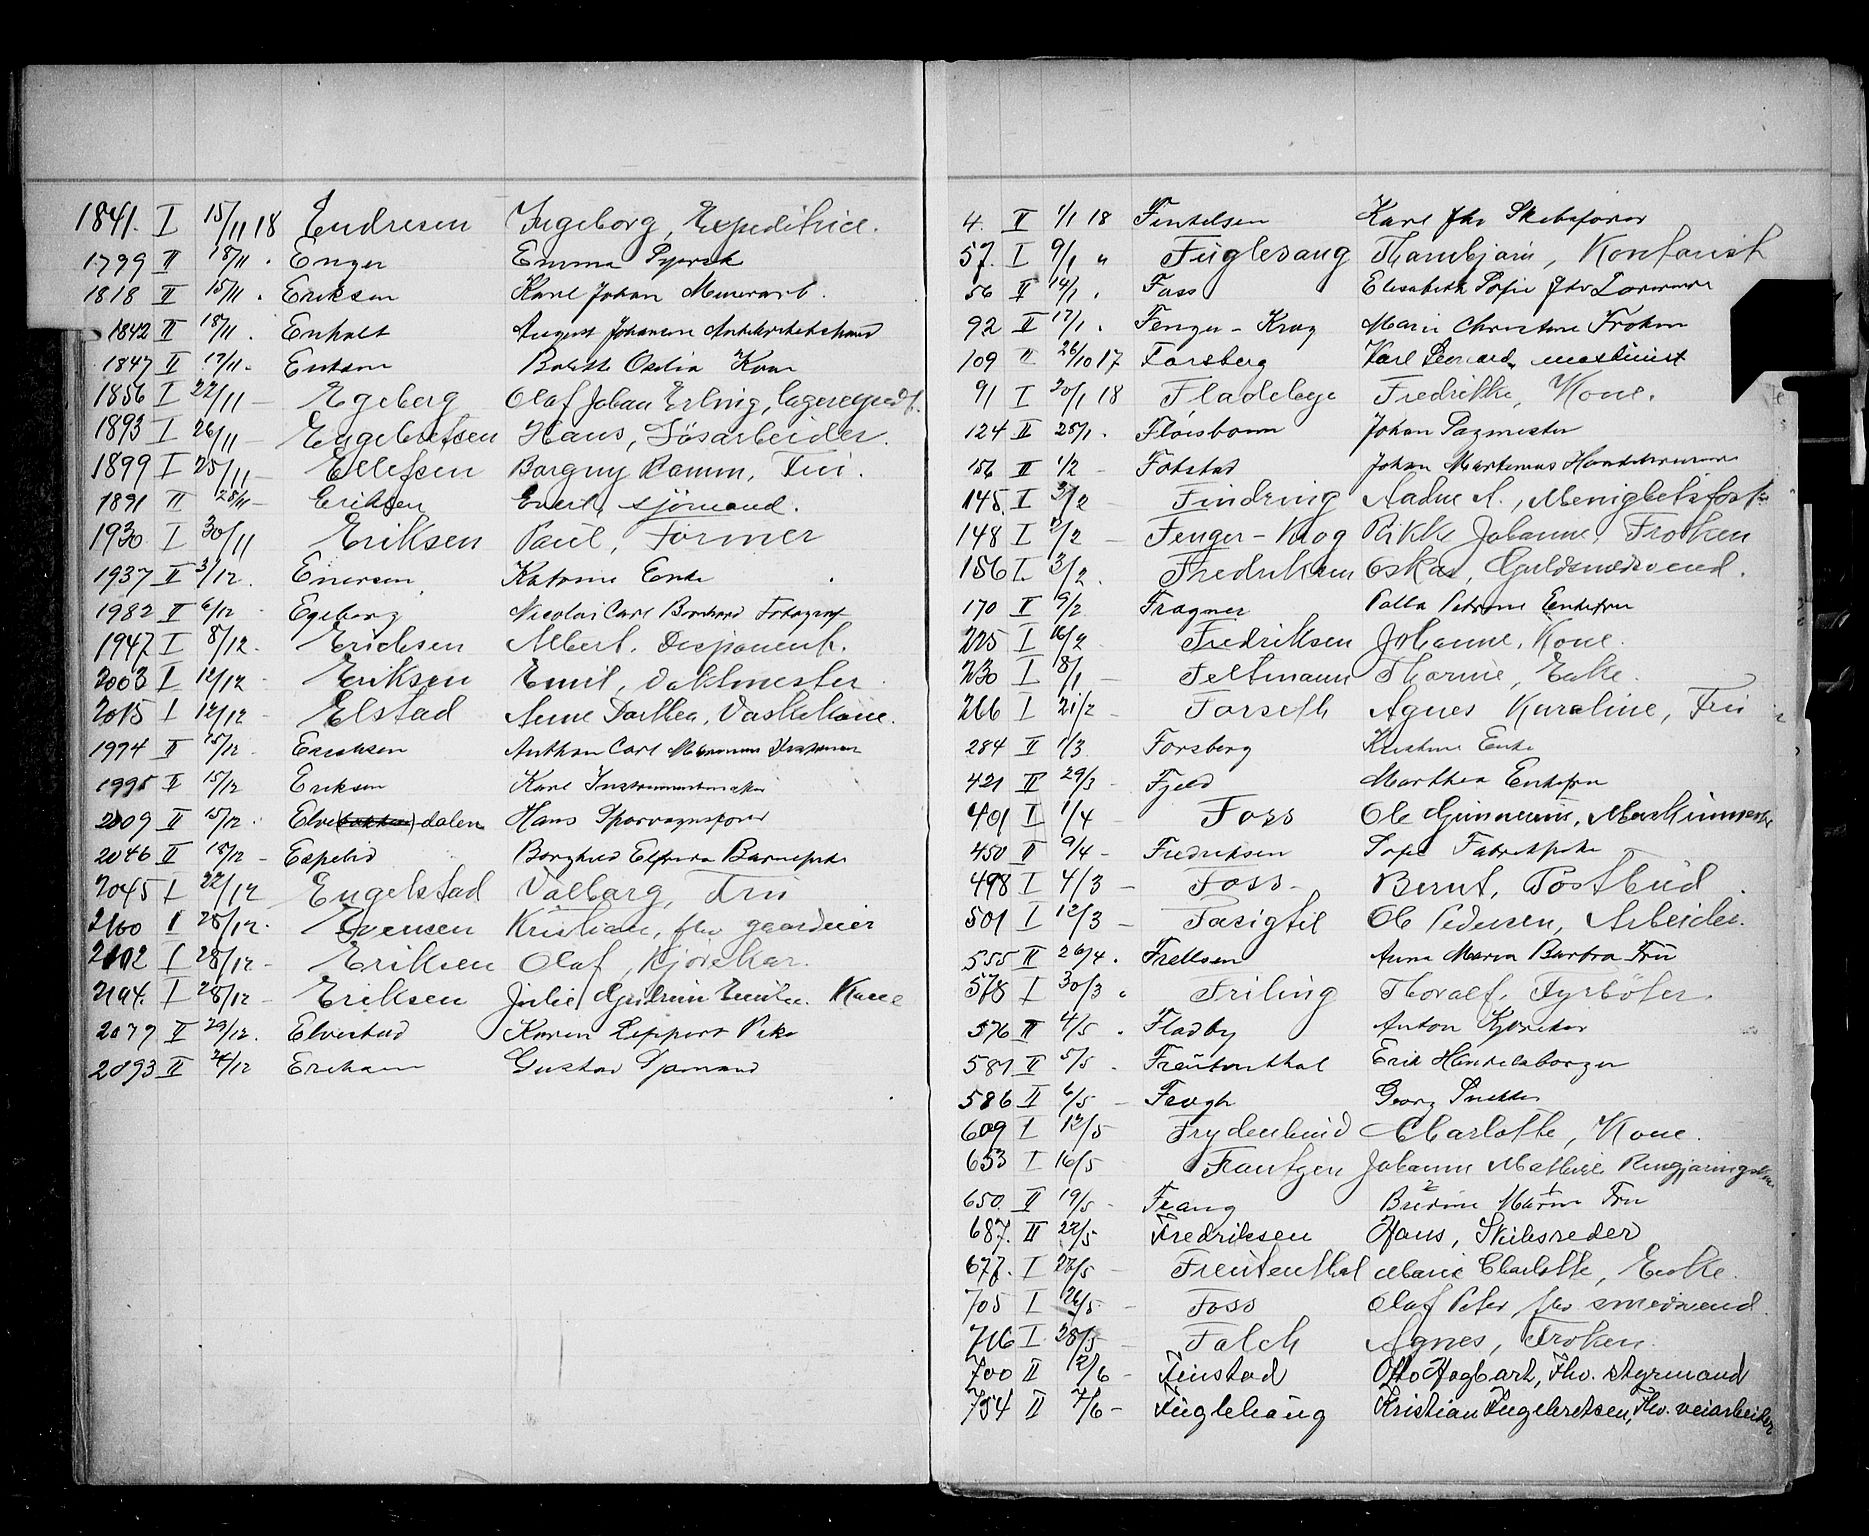 1841. I 15/11 18 Endresen Ingeborg, Expeditrice.
1799 II 18/11 . Enger Emma
1818 II 15/11 . Eriksen Karl Johan Murerarb.
1842 II 18/11 . Enholt August Johansen
1847 II 17/11 . Eriksen Oxelia Kone
1856 I 22/11 — Egeberg Olaf Johan Erling, lagerexpedt.
1893 I 26/11 — Engebretsen Hans, Løsarbeider.
1899 I 25/11 — Ellefsen Borgny Ramm, Frü.
1891 II 28/11 — Eriksen Evert, sjömand.
1930 I 30/11 Eriksen Paul, Former
1937 II 3/12. Einersen Katrine Enke
1982 II 6/12 Egeberg Nicolai Carl Bernhard Fotograf
1947 I 8/12. Erichsen Albert, Disponent.
2003 I 12/12 - Eriksen Emil, Vaktmester.
2015 I 12/12 - Elstad Anne Dorthea, Vaskekone.
1994 II 15/12 . Eriksen Anthon Carl
1995 II 15/12 Eriksen Karl Instrumentmaker
2009 II 15/12 . Elve(bakken)dalen Hans Sporvognsfører
2046 II 18/12 — Espelid Borghild Elfrida Barnepike
2045 I 22/12 Engelstad Valborg, Fru
2100 I 28/12. Evensen Kristian, fhv gaardeier
2102 I 28/12 - Eriksen Olaf, Kjørekar.
2104. I 28/12 - Eriksen Julie Gudrun Emilie. Kone
2077 II 29/12. Elvestad Karen Leppert Pike
2093 II 24/12 Eriksen Gustav Sjømand
4. II 1/1 18 Fintelsen Karl fhv Skibsfører
57. I 9/1 " Fuglesang Thorbjørn, Kontorist
56 II 14/1 . Foss Elisabeth Sofie fhv Lærerinde
92 II 17/1 . Fenger - Krog Marie Christine Frøken
109 II 26/10 17 Forsberg Karl Leonard, maskinist
91 I 20/1 18 Fladebye Fredrikke, Kone.
124 II 25/1 . Fløisbonn Johan Pazmester
156 II 1/2 - Fotstad Johan Martinius
145. I 3/2 — Findring Aadne A., Menighetsforst.
148 I 2/2 — Fenger - Krog Rikke Johanne, Frøken
156 I. 3/2 . Fredriksen Oskar, Guldsmedsvend.
170 II 9/2 Fragner Palla Petrine Enkefru
225 I 16/2 Fredriksen Johanne, Kone.
230 I 8/1 Feltmann Thorine, Enke.
266 I 21/2 - Forseth Agnes Karoline, Frü
284 II 1/3 Forsberg Kristine Enke
421 II 29/3 - Fjeld Marthea Enkefru
401 I 1/4 - Foss Ole Gunnerius, Maskinmester
450 II 9/4 - Fredriksen Sofie Fabrikpike
498 I 4/3 — Foss Bernt, Postbud.
501 I 12/3 — Fosigtil Ole Pedersen, Arbeider.
555 II 26/4 . Frellsen Anna Maria Barbra Frü
578 I 30/3 " Friling Thoralf, Fyrbøter.
576 II 4/5 . Fladby Anton Kjørekar
581 II 5/5 . Freutenthal Erik Handelsborger
586 II 6/5 — Feogh Georg Snekker
609 I 12/5 Frydenlund Charlotte, Kone.
653 I 16/5 Frantzen Johanne Mathilde Rengjøringskone
650. II 19/5 - Feang Bredine Marin Fru
687. II 22/5 Fredriksen Hans, Skibsreder
677. I 22/5 — Freutenthal Marie Charlotte, Enke.
705 I 26/5. — Foss Olaf Peter, fhv smedsvend.
716 I 28/5 — Falch Agnes, Frøken.
700 II 12/6 — Finstad Otto Hagbart, Fhv. styrmand
754 II 7/6 — Fuglehaug Kristian Engebretsen, Fhv. veiarbeider